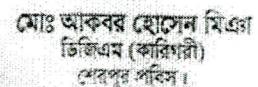 মোঃ আকবর হোসেন মিঞা
ডিজিএম (কারিগরী)
শেরপুর পবিস।